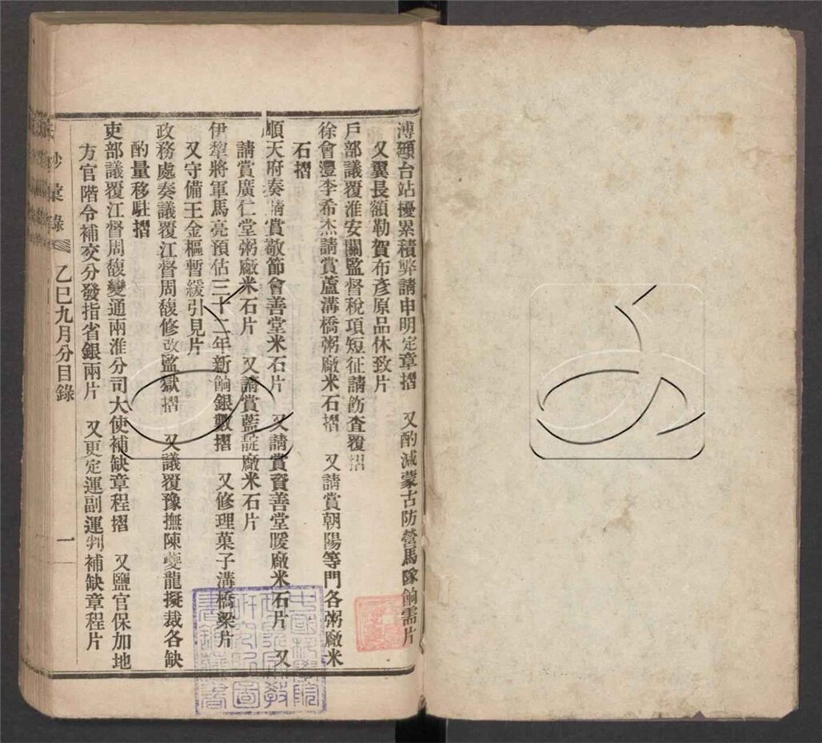 溥頲台站擾累積弊請申明定章摺　又酌減蒙古防營馬隊餉需片
又翼長額勒賀布彥原品休致片
戶部議覆淮安關監督稅項短征請飭查覆摺
徐會灃李希杰請賞蘆溝橋粥廠米石摺　又請賞朝陽等門各粥廠米
石摺
順天府奏請賞敬節會善堂米石片　又請賞資善堂暖廠米石片　又
請賞廣仁堂粥廠米石片　又請賞藍靛廠米石片
伊犂將軍馬亮預估三十二年新餉銀數摺　又修理菓子溝橋梁片
又守備王金樞暫緩引見片
政務處奏議覆江督周馥修改監獄摺　又議覆豫撫陳夔龍擬裁各缺
酌量移駐摺
吏部議覆江督周馥變通兩淮分司大使補缺章程摺　又鹽官保加地
方官階令補交分發指省銀兩片　又更定運副運判補缺章程片
鈔彙錄　乙巳九月分目錄　一